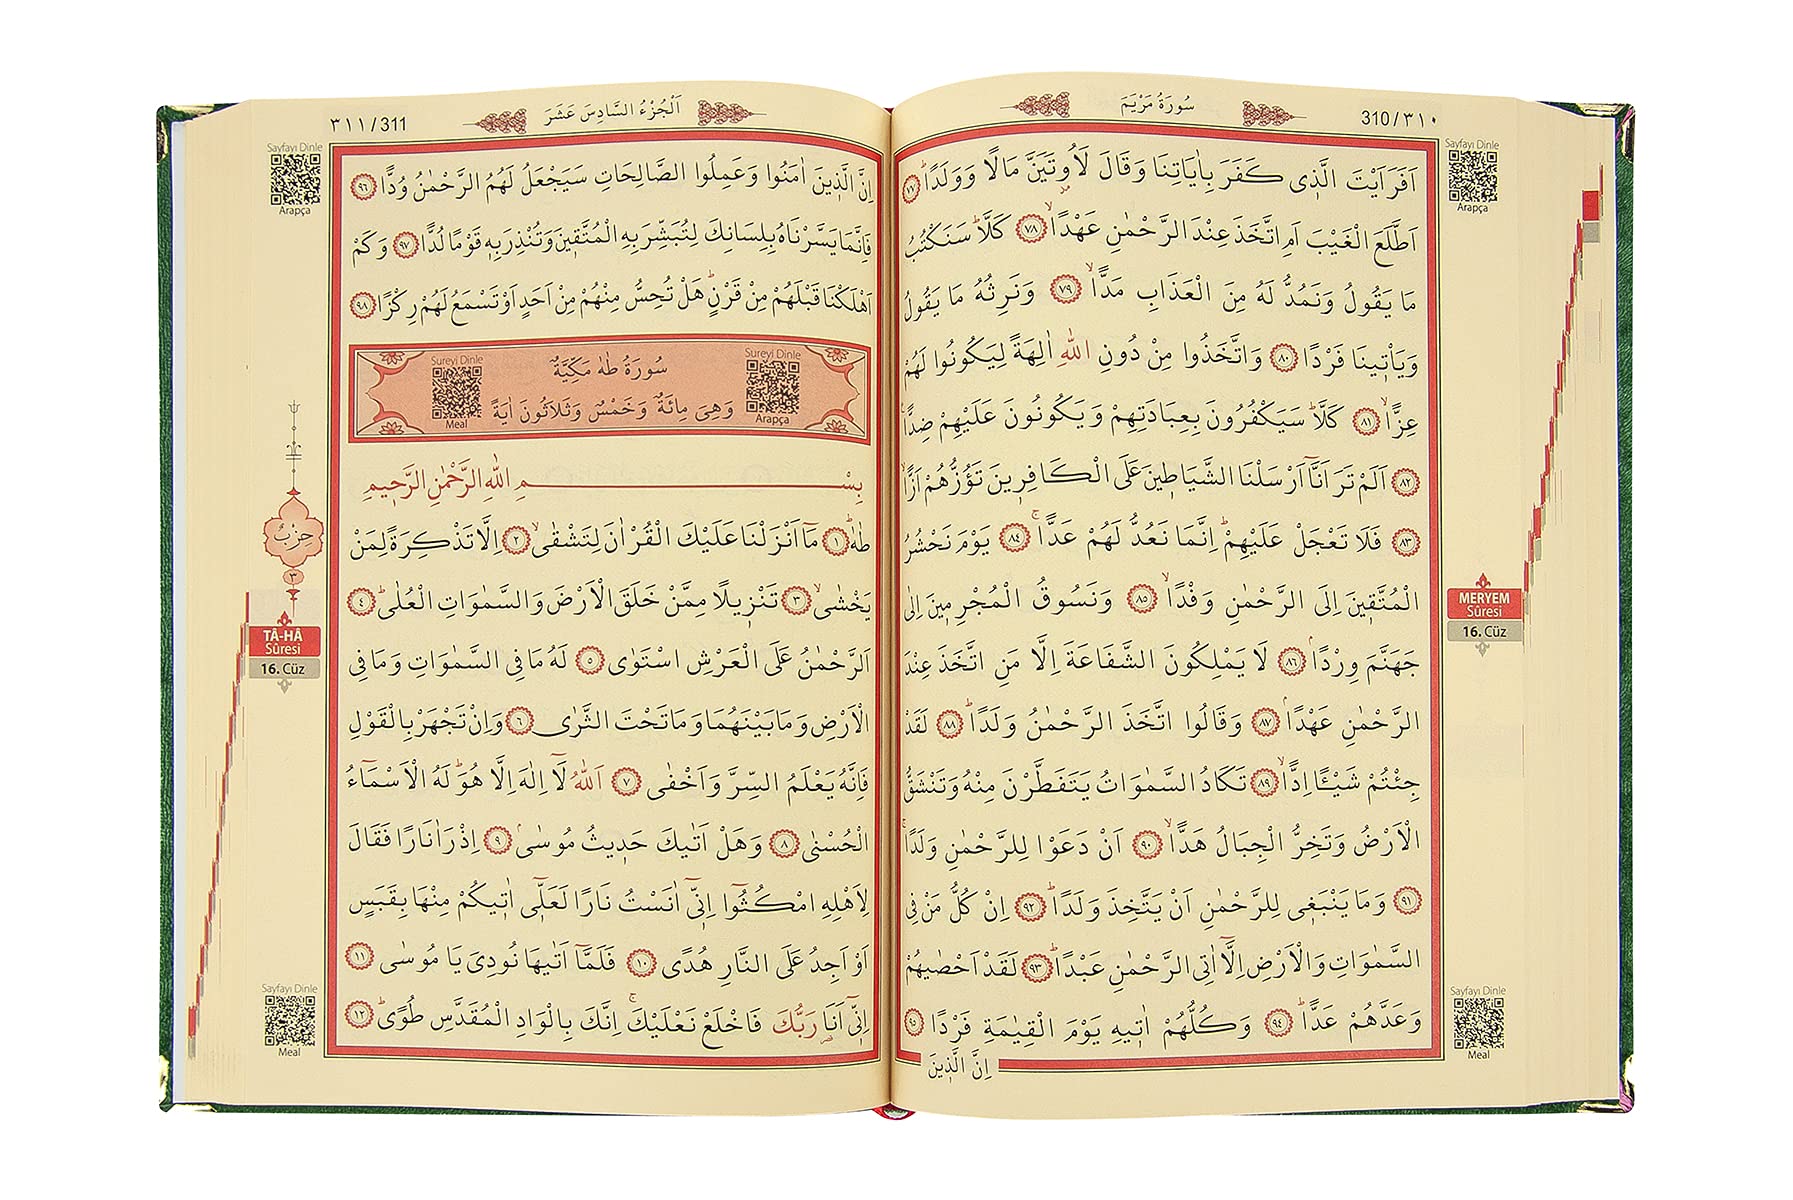 310/٣١٠
سُورَةُ مَرْيَمَ
Sayfayı Dinle
Arapça
اَفَرَاَيْتَ الَّذ۪ي كَفَرَ بِاٰيَاتِنَا وَقَالَ لَاُوتَيَنَّ مَالًا وَوَلَدًاۜ ﴿٧٧﴾
اَطَّلَعَ الْغَيْبَ اَمِ اتَّخَذَ عِنْدَ الرَّحْمٰنِ عَهْدًاۙ ﴿٧٨﴾ كَلَّاۜ سَنَكْتُبُ
مَا يَقُولُ وَنَمُدُّ لَهُ مِنَ الْعَذَابِ مَدًّاۙ ﴿٧٩﴾ وَنَرِثُهُ مَا يَقُولُ
وَيَأْت۪ينَا فَرْدًا ﴿٨٠﴾ وَاتَّخَذُوا مِنْ دُونِ اللّٰهِ اٰلِهَةً لِيَكُونُوا لَهُمْ
عِزًّاۙ ﴿٨١﴾ كَلَّاۜ سَيَكْفُرُونَ بِعِبَادَتِهِمْ وَيَكُونُونَ عَلَيْهِمْ ضِدًّا
﴿٨٢﴾ اَلَمْ تَرَ اَنَّٓا اَرْسَلْنَا الشَّيَاط۪ينَ عَلَى الْكَافِر۪ينَ تَؤُزُّهُمْ اَزًّاۙ
﴿٨٣﴾ فَلَا تَعْجَلْ عَلَيْهِمْۜ اِنَّمَا نَعُدُّ لَهُمْ عَدًّاۚ ﴿٨٤﴾ يَوْمَ نَحْشُرُ
الْمُتَّق۪ينَ اِلَى الرَّحْمٰنِ وَفْدًاۙ ﴿٨٥﴾ وَنَسُوقُ الْمُجْرِم۪ينَ اِلٰى
جَهَنَّمَ وِرْدًاۢ ﴿٨٦﴾ لَا يَمْلِكُونَ الشَّفَاعَةَ اِلَّا مَنِ اتَّخَذَ عِنْدَ
الرَّحْمٰنِ عَهْدًاۢ ﴿٨٧﴾ وَقَالُوا اتَّخَذَ الرَّحْمٰنُ وَلَدًاۜ ﴿٨٨﴾ لَقَدْ
جِئْتُمْ شَيْـًٔا اِدًّاۙ ﴿٨٩﴾ تَكَادُ السَّمٰوَاتُ يَتَفَطَّرْنَ مِنْهُ وَتَنْشَقُّ
الْاَرْضُ وَتَخِرُّ الْجِبَالُ هَدًّاۙ ﴿٩٠﴾ اَنْ دَعَوْا لِلرَّحْمٰنِ وَلَدًاۚ
﴿٩١﴾ وَمَا يَنْبَغ۪ي لِلرَّحْمٰنِ اَنْ يَتَّخِذَ وَلَدًاۜ ﴿٩٢﴾ اِنْ كُلُّ مَنْ فِي
السَّمٰوَاتِ وَالْاَرْضِ اِلَّٓا اٰتِي الرَّحْمٰنِ عَبْدًاۜ ﴿٩٣﴾ لَقَدْ اَحْصٰيهُمْ
وَعَدَّهُمْ عَدًّاۜ ﴿٩٤﴾ وَكُلُّهُمْ اٰت۪يهِ يَوْمَ الْقِيٰمَةِ فَرْدًا ﴿٩٥﴾
اِنَّ الَّذ۪ينَ
MERYEM
Sûresi
16. Cüz
Sayfayı Dinle
Meal
اَلْجُزْءُ السَّادِسَ عَشَرَ
٣١١/311
Sayfayı Dinle
Arapça
اِنَّ الَّذ۪ينَ اٰمَنُوا وَعَمِلُوا الصَّالِحَاتِ سَيَجْعَلُ لَهُمُ الرَّحْمٰنُ وُدًّا ﴿٩٦﴾
فَاِنَّمَا يَسَّرْنَاهُ بِلِسَانِكَ لِتُبَشِّرَ بِهِ الْمُتَّق۪ينَ وَتُنْذِرَ بِه۪ قَوْمًا لُدًّا ﴿٩٧﴾ وَكَمْ
اَهْلَكْنَا قَبْلَهُمْ مِنْ قَرْنٍۜ هَلْ تُحِسُّ مِنْهُمْ مِنْ اَحَدٍ اَوْ تَسْمَعُ لَهُمْ رِكْزًا ﴿٩٨﴾
Sureyi Dinle
Arapça
سُورَةُ طٰهٰ مَكِّيَّةٌ
وَهِيَ مِائَةٌ وَخَمْسٌ وَثَلَاثُونَ اٰيَةً
Sureyi Dinle
Meal
بِسْمِ اللّٰهِ الرَّحْمٰنِ الرَّح۪يمِ
طٰهٰۜ ﴿١﴾ مَٓا اَنْزَلْنَا عَلَيْكَ الْقُرْاٰنَ لِتَشْقٰىۙ ﴿٢﴾ اِلَّا تَذْكِرَةً لِمَنْ
يَخْشٰىۙ ﴿٣﴾ تَنْز۪يلًا مِمَّنْ خَلَقَ الْاَرْضَ وَالسَّمٰوَاتِ الْعُلٰىۜ ﴿٤﴾
اَلرَّحْمٰنُ عَلَى الْعَرْشِ اسْتَوٰى ﴿٥﴾ لَهُ مَا فِي السَّمٰوَاتِ وَمَا فِي
الْاَرْضِ وَمَا بَيْنَهُمَا وَمَا تَحْتَ الثَّرٰى ﴿٦﴾ وَاِنْ تَجْهَرْ بِالْقَوْلِ
فَاِنَّهُ يَعْلَمُ السِّرَّ وَاَخْفٰى ﴿٧﴾ اَللّٰهُ لَٓا اِلٰهَ اِلَّا هُوَۜ لَهُ الْاَسْمَٓاءُ
الْحُسْنٰى ﴿٨﴾ وَهَلْ اَتٰيكَ حَد۪يثُ مُوسٰىۢ ﴿٩﴾ اِذْ رَاٰ نَارًا فَقَالَ
لِاَهْلِهِ امْكُثُٓوا اِنّ۪ٓي اٰنَسْتُ نَارًا لَعَلّ۪ٓي اٰت۪يكُمْ مِنْهَا بِقَبَسٍ
اَوْ اَجِدُ عَلَى النَّارِ هُدًى ﴿١٠﴾ فَلَمَّٓا اَتٰيهَا نُودِيَ يَا مُوسٰى ﴿١١﴾
اِنّ۪ٓي اَنَا۬ رَبُّكَ فَاخْلَعْ نَعْلَيْكَۚ اِنَّكَ بِالْوَادِ الْمُقَدَّسِ طُوًىۜ ﴿١٢﴾
حِزْبٌ
٣
TÂ-HÂ
Sûresi
16. Cüz
Sayfayı Dinle
Meal